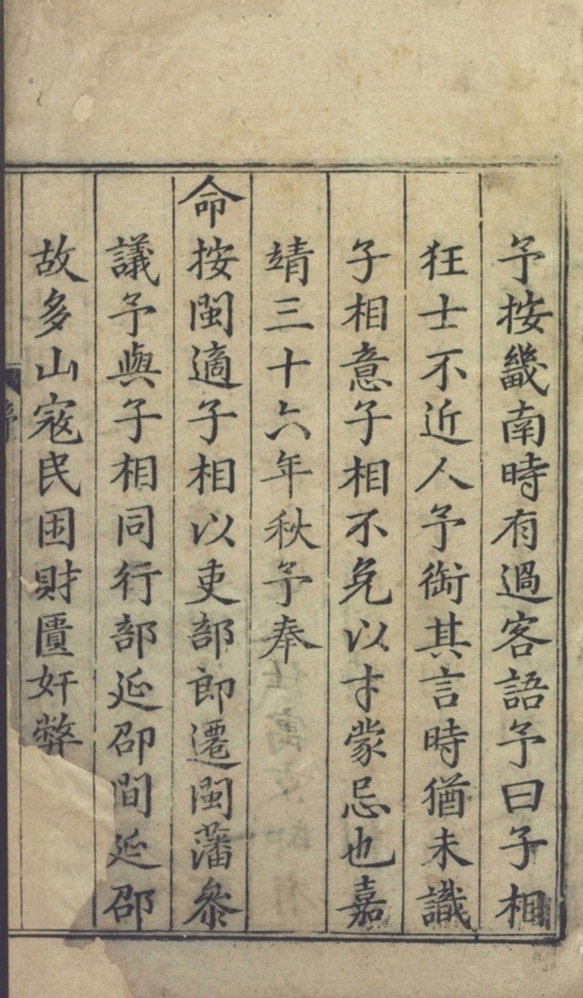 予按畿南時有過客語予曰子相
狂士不近人予銜其言時猶未識
子相意子相不免以才蒙忌也嘉
靖三十六年秋予奉
命按閩適子相以吏部郎遷閩藩叅
議予與子相同行部延邵間延邵
故多山寇民困財匱奸弊